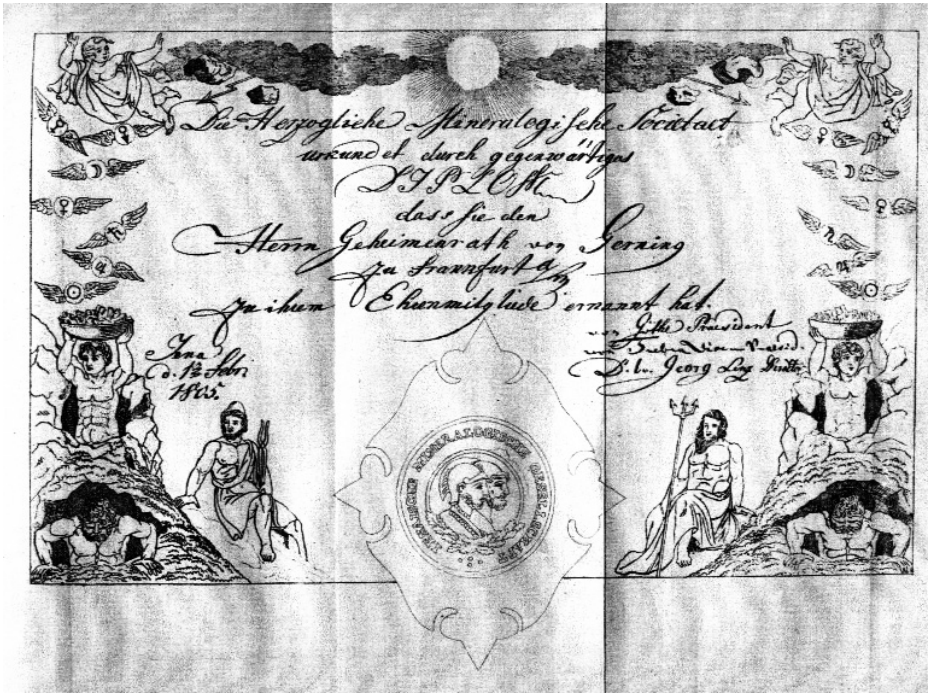 Die Herzogliche Mineralogische Societaet
urkundet durch gegenwärtiges
DIPLOM
dass sie den
Herrn Geheimenrath von Gerning
zu Frannkfurt a/m
zu ihrem Ehrenmitgliede ernannt hat.
Jena
d. 12 Febr.
1805.
von Göthe Praesident
von
D. Georg Lenz Director
MINERALOGISCHE GESELLSCHAFT